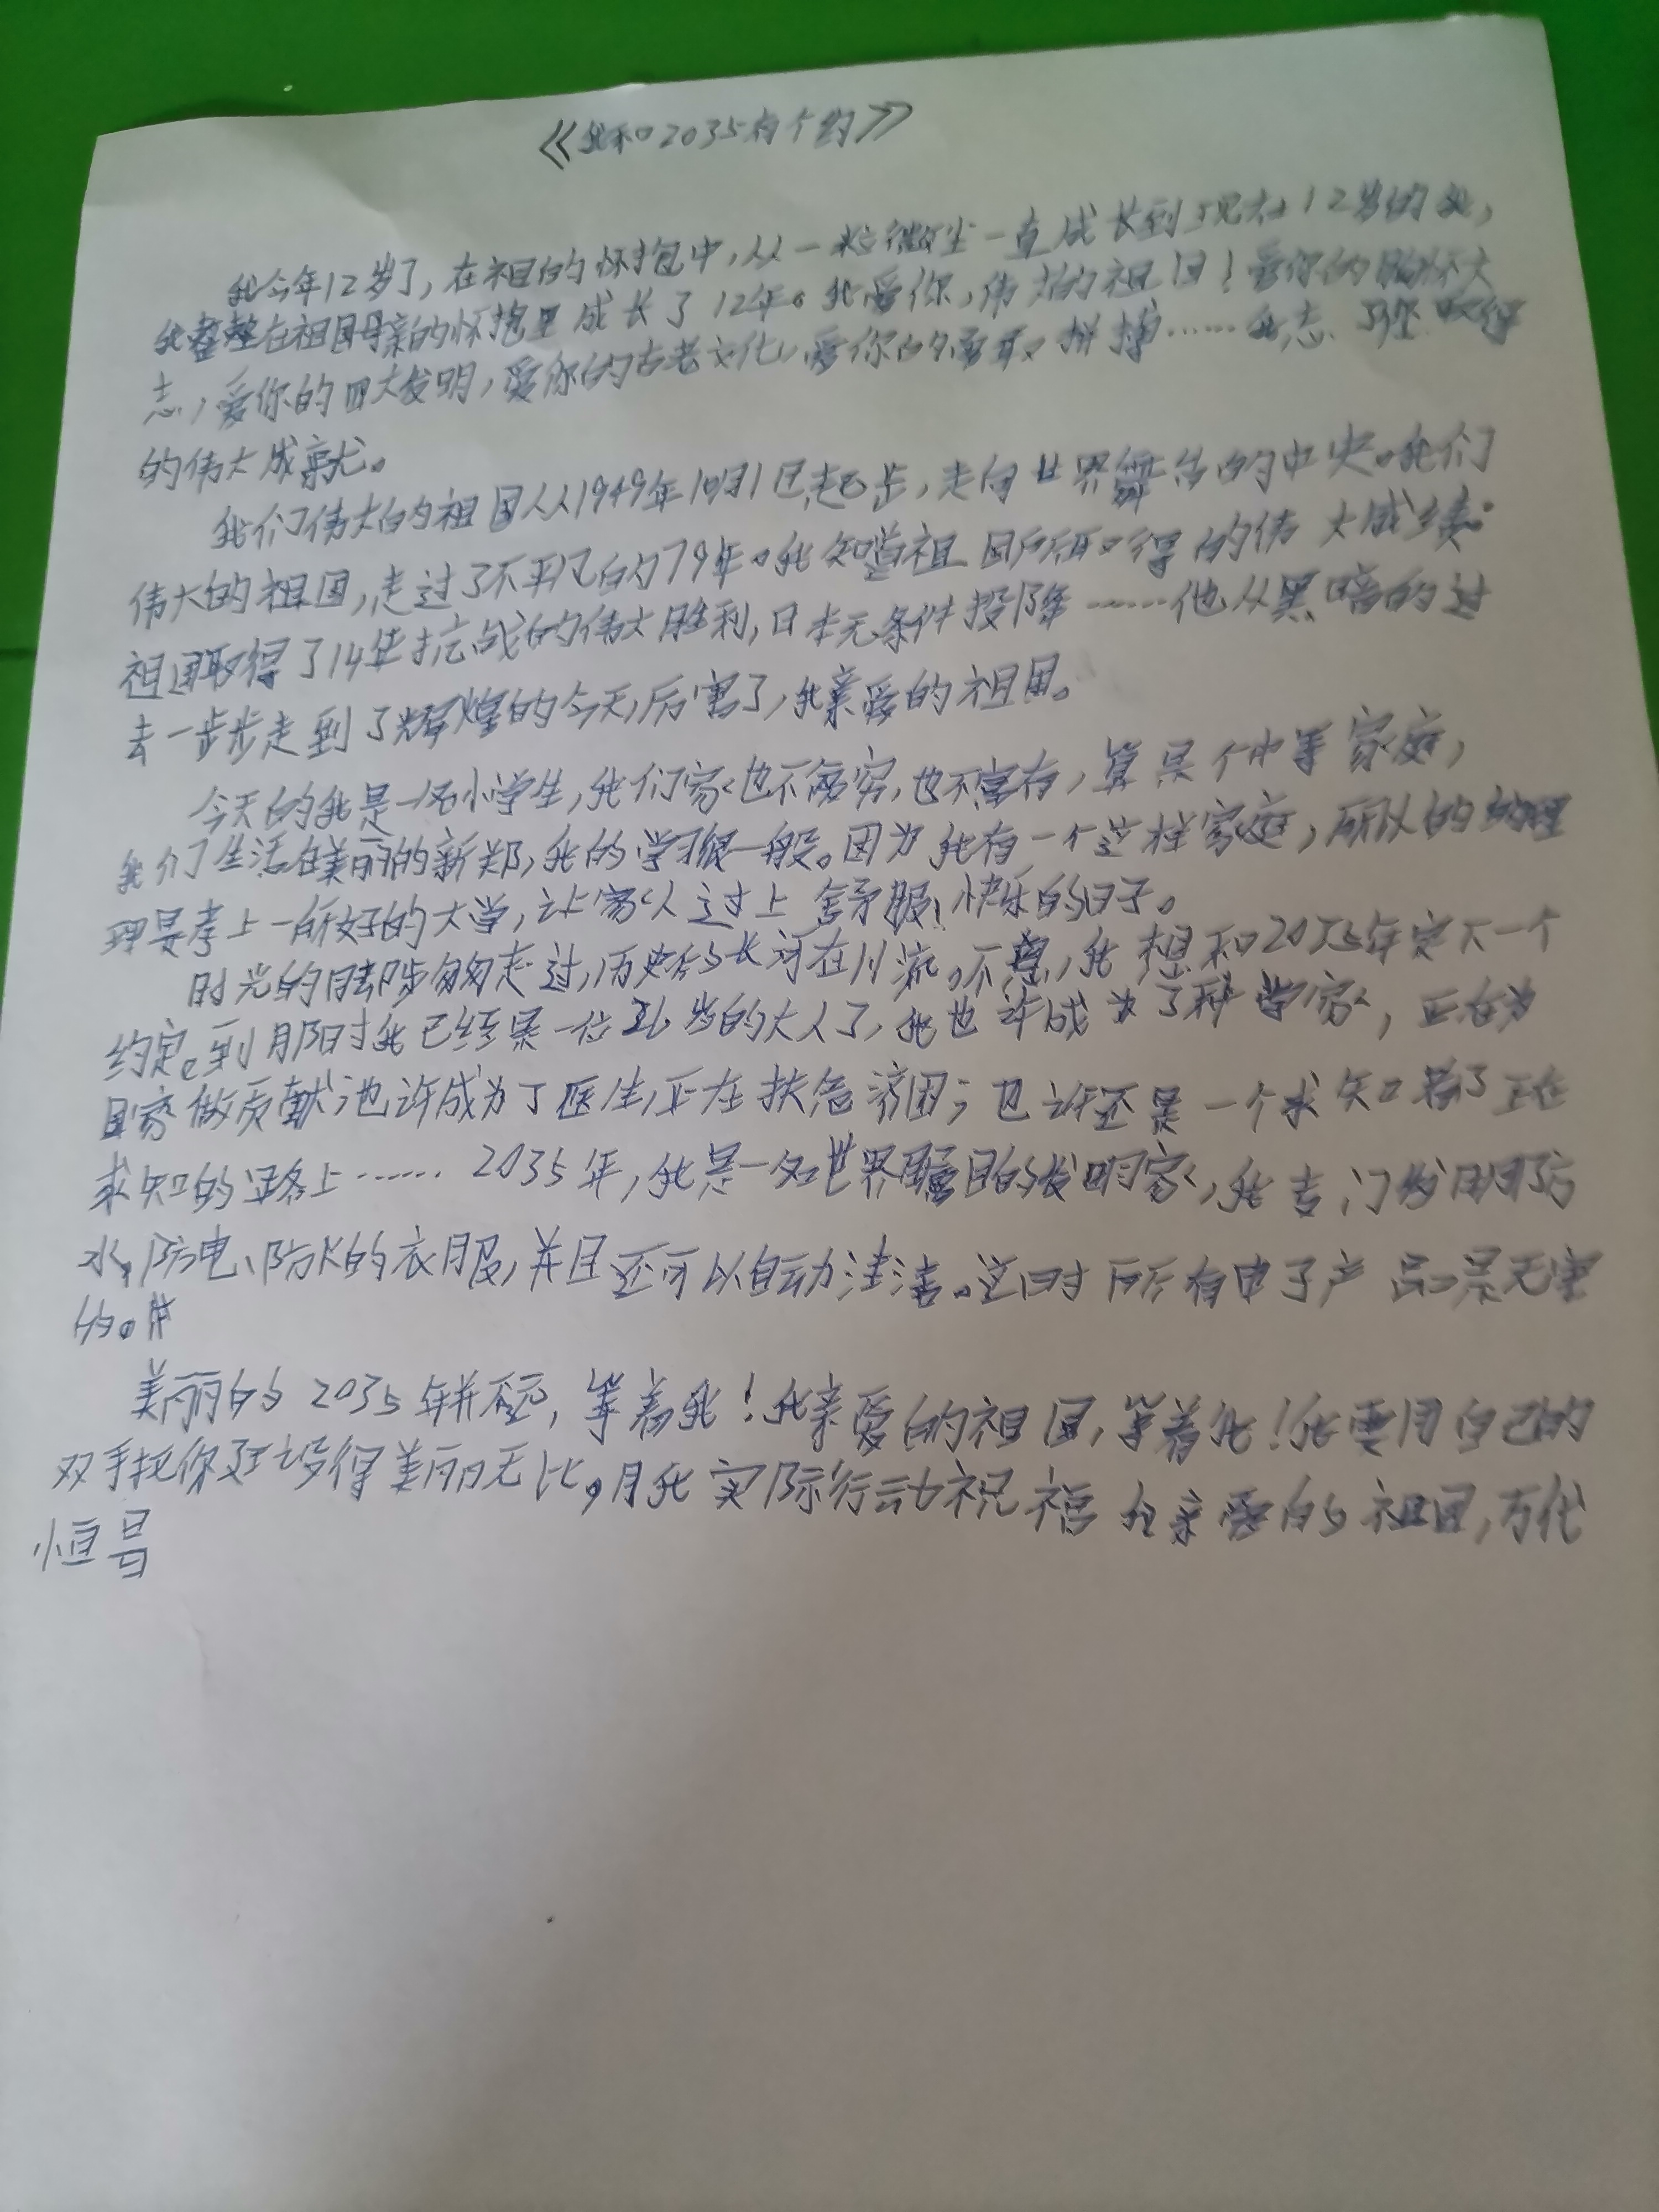 《我和2035有个约》
我今年12岁了,在祖的怀抱中,从一粒微尘一直成长到现在12岁的我,
我整整在祖国母亲的怀抱里成长了12年。我爱你,伟大的祖国!爱你的胸怀大
志,爱你的四大发明,爱你的古老文化,爱你的勇取拼搏……我志取得
的伟大成就。
我们伟大的祖国从1949年10月1日起步,走向世界舞台的中央。我们
伟大的祖国,走过了不平凡的79年。我知道祖国所取得的伟大成绩。
祖国取得了14年抗战的伟大胜利,日本无条件投降……他从黑暗的过
去一步步走到了辉煌的今天,厉害了,我亲爱的祖国。
今天的我是一名小学生,我们家也不贫穷,也不富有,算是个中等家庭,
我们生活在美丽的新郑,我的学习很一般。因为我有一个这样家庭,所以的
理是考上一所好的大学,让家人过上舒服、快乐的日子。
时光的脚步匆匆走过,历史的长河在川流不息,我想和2035年定下一个
约定。到那时我已经是一位26岁的大人了,我也许成为了科学家,正在为
国家做贡献;也许成为了医生,正在扶危济困;也许还是一个求知者正在
求知的路上…… 2035年,我是一名世界瞩目的发明家,我专门发明防
水,防电、防火的衣服,并且还可以自动清洁。这时所有电子产品是无害
的。
美丽的2035年,等着我!我亲爱的祖国,等着我!我要用自己的
双手把你建设得美丽无比,用我实际行动祝福我亲爱的祖国,万代
恒昌